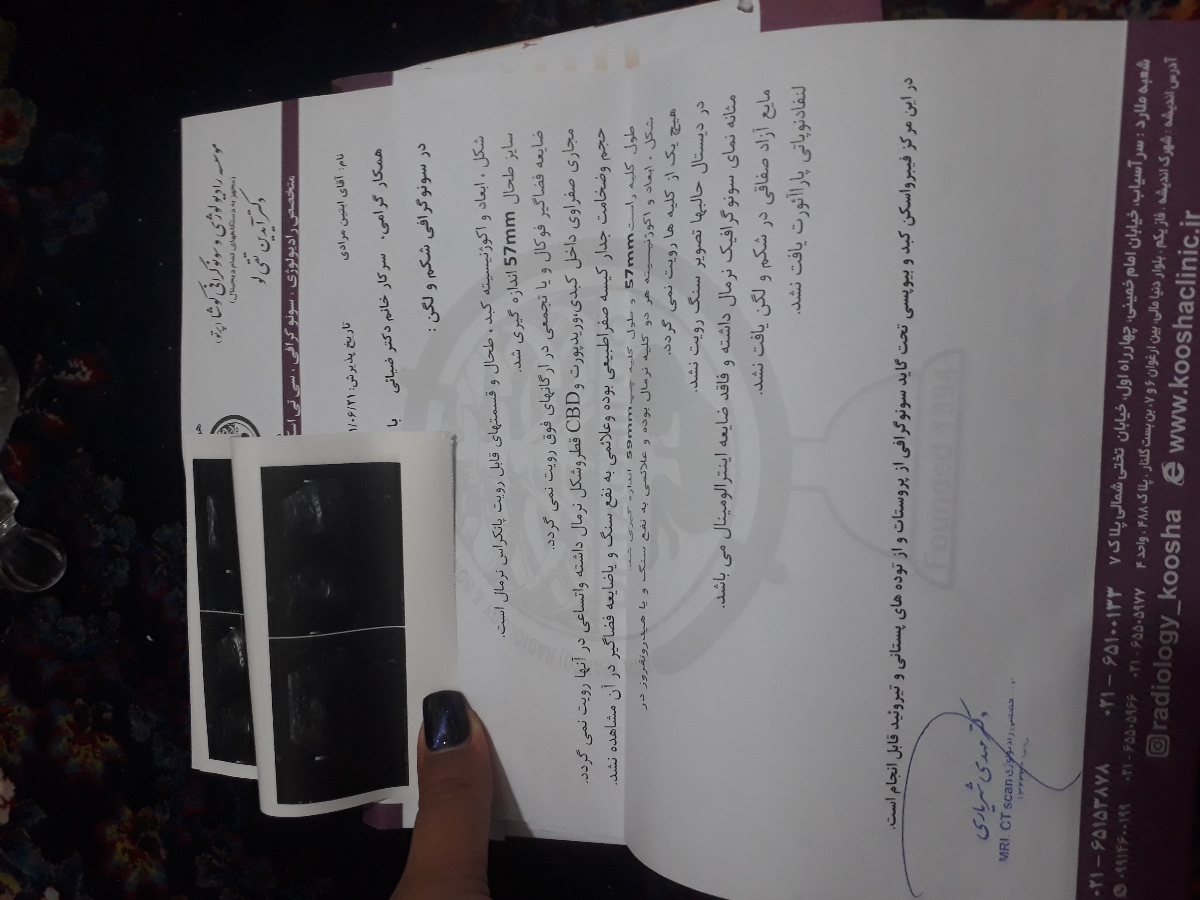 موسسه رادیولوژی و سونوگرافی کوشا
(مجهز به دستگاههای تمام دیجیتال)
متخصص رادیولوژی ، سونوگرافی ، سی تی اسکن
نام: آقای آبتین مرادی
تاریخ پذیرش:
همکار گرامی، سرکار خانم دکتر ضیائی با
در سونوگرافی شکم و لگن :
شکل ، ابعاد و اکوژنیسیته کبد ، طحال و قسمتهای قابل رویت پانکراس نرمال است.
سایز طحال 57mm اندازه گیری شد.
ضایعه فضاگیر فوکال و یا تجمعی در ارگانهای فوق رویت نمی گردد.
مجاری صفراوی داخل کبدی،وریدپورت و CBD قطروشکل نرمال داشته واتساعی در آنها رویت نمی گردد.
حجم وضخامت جدار کیسه صفراطبیعی بوده وعلائمی به نفع سنگ و یاضایعه فضاگیر در آن مشاهده نشد.
طول کلیه راست57mm و طول کلیه چپ59mm اندازه گیری شد.
شکل ، ابعاد و اکوژنیسیته هر دو کلیه نرمال بوده و علائمی به نفع سنگ و یا هیدرونفروز در
هیچ یک از کلیه ها رویت نمی گردد.
در دیستال حالبها تصویر سنگ رویت نشد.
مثانه نمای سونوگرافیک نرمال داشته و فاقد ضایعه اینترالومینال می باشد.
مایع آزاد صفاقی در شکم و لگن یافت نشد.
لنفادنوپاتی پاراآئورت یافت نشد.
در این مرکز فیبرواسکن کبد و بیوپسی تحت گاید سونوگرافی از پروستات و از توده های پستانی و تیروئید قابل انجام است.
MRI. CT scan
Founded 1394
شعبه ملارد : سرآسیاب، خیابان امام خمینی، چهارراه اول، خیابان تختی شمالی پلاک ۷
۰۲۱ – ۶۵۱۰۰۱۳۳
۰۲۱ – ۶۵۱۵۳۸۷۸
آدرس اندیشه : شهرک اندیشه، فاز یکم، بلوار دنیا مالی، بین ارغوان ۶ و ۷، بن بست گلنار، پلاک ۴۸۸، واحد ۴
۰۲۱ - ۶۵۵۰۵۹۷۷
۰۲۱ - ۶۵۵۰۵۱۶۶
radiology_koosha
www.kooshaclinic.ir